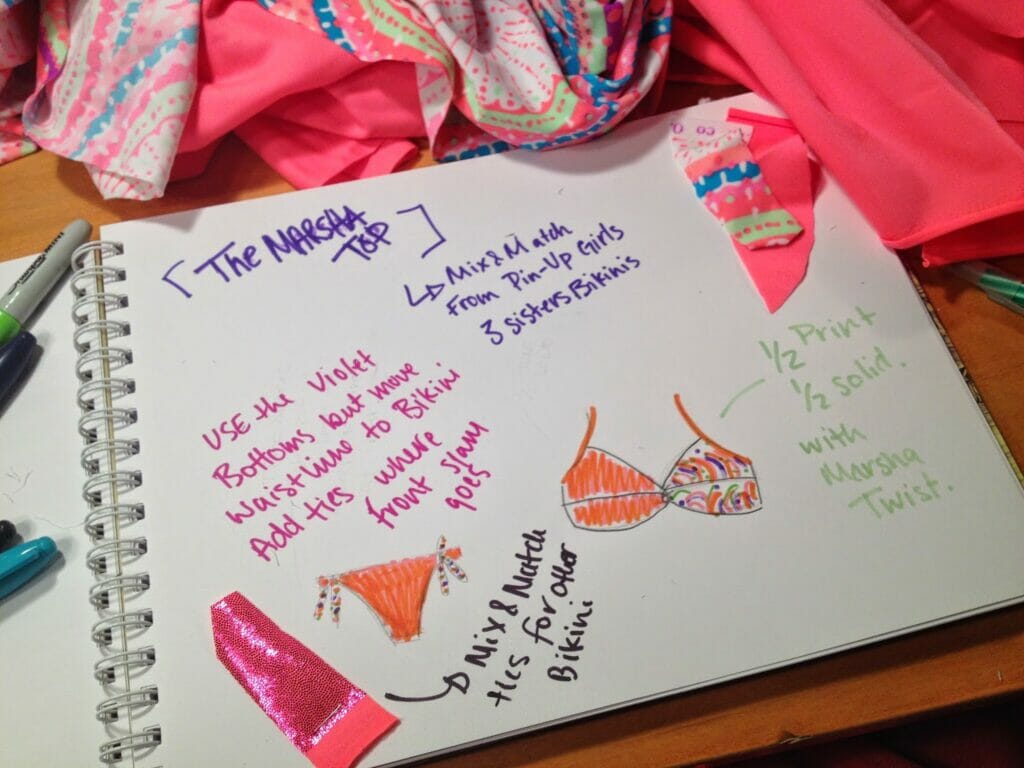 The MARSHA
TOP
Mix & Match
From Pin-Up Girls
3 sisters Bikinis
USE the Violet
Bottoms but move
waist line to Bikini
Add ties where
front slam
goes
1/2 Print
1/2 solid.
with
Marsha
Twist.
Mix & Match
ties for other
Bikini